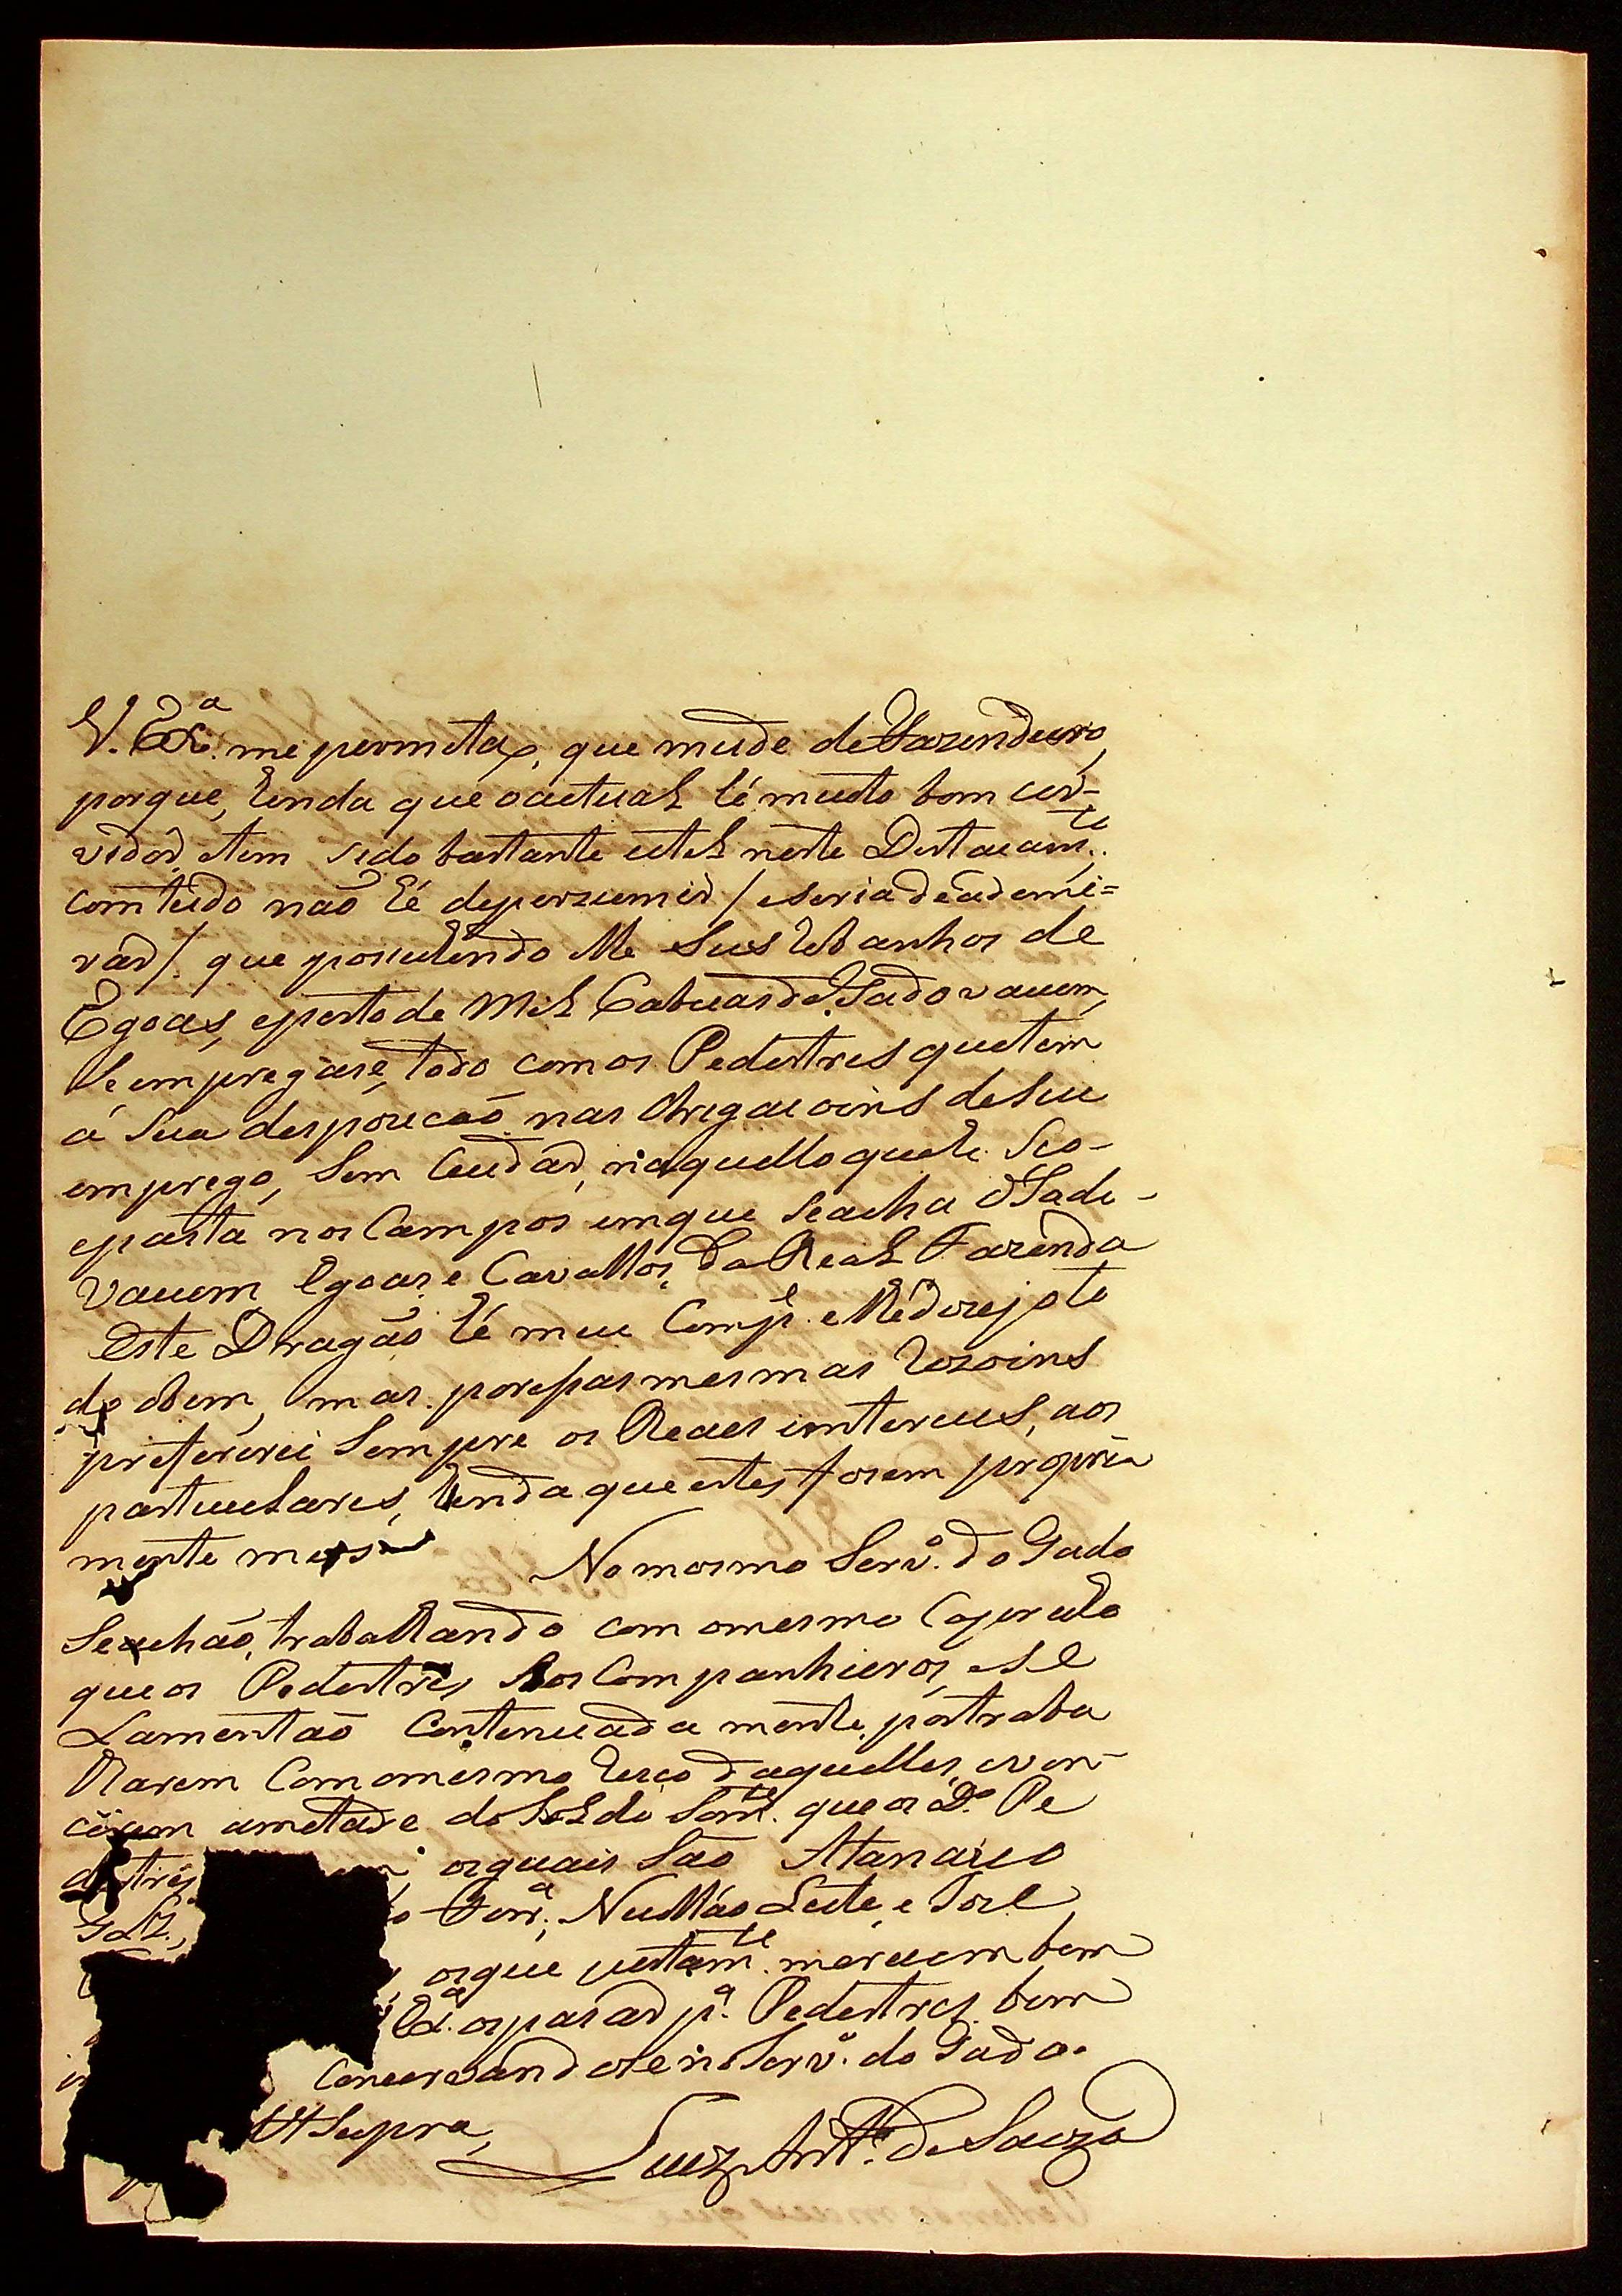 V. Ex.ª me permita, que mude de Fazendeiro,
porque, hinda que o actual hé muito bom cer-
vidor, e tem sido bastante util neste Destacam.to
comtudo não hé deperzumir / eseria deademi=
rar / que possuhindo elle seus Rebanhos de
Egoas, eperto de Mil Cabeças de Gado vacum,
se empregase, todo com os Pedestres quetem
á sua desposição nas obrigacoins deseu
emprego, sem cuidar, naquello quelhe
epasta nos Campos emque seacha o Gado
vacum Egoas, e Cavallos, da Real Fazenda
Este Dragão hé meu Comp.e e lhedezejo to
do obem, mas. poressas mesmas rezoins
preferirei sempre os Reaes intereces, aos
particulares, hinda que estes forem propria
mente meos Nomesmo Serv.º do Gado
seachão, trabalhando com omesmo
que os Pedestres, companheiros, ese
Lamentão Continuada mente, portraba
lharem Comomesmo risco daquelles, even-
cerem ametade do Soldo Som.te que os D.os Pe
destres osquais são Atanazio
Glz., Ferr.ª, Nulhão Leite, e Joze
osque justam.te merecem bem
Ex.ª ospasar p.ª Pedestres, bem
Concervandose no Serv.º do Gado.
Ut Supra,
Luiz Ant.º de Souza